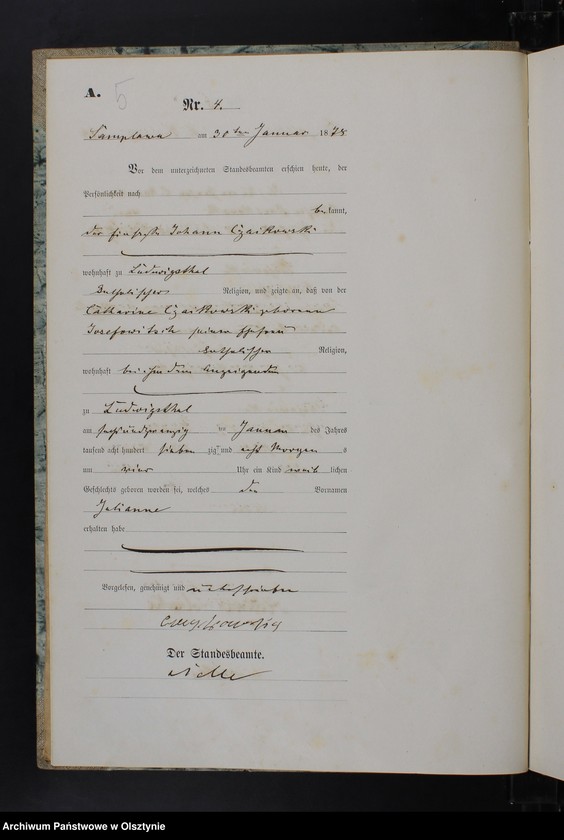 A. 5
Nr. 4.
Samplawa am 30ten Januar 1878
Vor dem unterzeichneten Standesbeamten erschien heute, der
Persönlichkeit nach
bekannt,
der Johann Czaikowski
wohnhaft zu Ludwigsthal
katholischer Religion, und zeigte an, daß von der
Catharine Czaikowski geborenen
Josefowitsch seiner Ehefrau
katholischer Religion,
wohnhaft bei ihm dem Anzeigenden
zu Ludwigsthal
am sechsundzwanzig ten Januar des Jahres
tausend acht hundert sieben zig und acht Morgens
um vier Uhr ein Kind weib lichen
Geschlechts geboren worden sei, welches den Vornamen
Julianne
erhalten habe
Vorgelesen, genehmigt und unterschrieben
Der Standesbeamte.
Archiwum Państwowe w Olsztynie